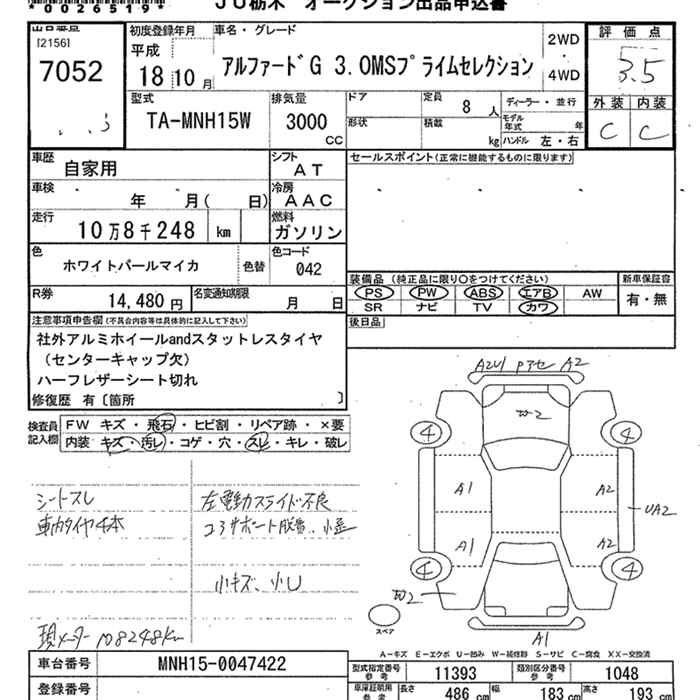 *0026519*
JU栃木 オークション出品申込書
出品番号
[2156]
7052
初度登録年月
平成
18 10 月
車名・グレード
アルファードG 3.0MSプライムセレクション
2WD
4WD
評価点
3.5
外装 内装
C C
型式
TA-MNH15W
排気量
3000
CC
ドア
形状
定員
8 人
積載
kg
ディーラー・並行
モデル年式 年
ハンドル 左・右
車歴
自家用
シフト
AT
セールスポイント(正常に機能するものに限ります)
車検
年 月( 日)
冷房
AAC
走行
10万8千248 km
燃料
ガソリン
色
ホワイトパールマイカ
色替
色コード
042
装備品 (純正品に限り〇をつけてください)
PS PW ABS エアB AW
SR ナビ TV カワ
新車保証書
有・無
R券
14,480 円
名変通知期限
月 日
後日品
注意事項申告欄 (不具合内容等は具体的に記入して下さい)
社外アルミホイールandスタットレスタイヤ
(センターキャップ欠)
ハーフレザーシート切れ
修復歴 有〔箇所 〕
検査員記入欄
FW キズ・飛石・ヒビ割・リペア跡・×要
内装 キズ・汚レ・コゲ・穴・スレ・キレ・破レ
シートスレ
左電動スライド不良
小キズ、小U
現メーター 108248km
A2U1 Pアセ A2
4 4
A1 A2
UA2
A1 A2
4 4
A1
スペア
A-キズ E-エクボ U-凹み W-補修跡 S-サビ C-腐食 XX-交換済
車台番号
MNH15-0047422
登録番号
型式指定番号 参考
11393
類別区分番号 参考
1048
車庫証明用 参考
長さ 486 cm
幅 183 cm
高さ 193 cm